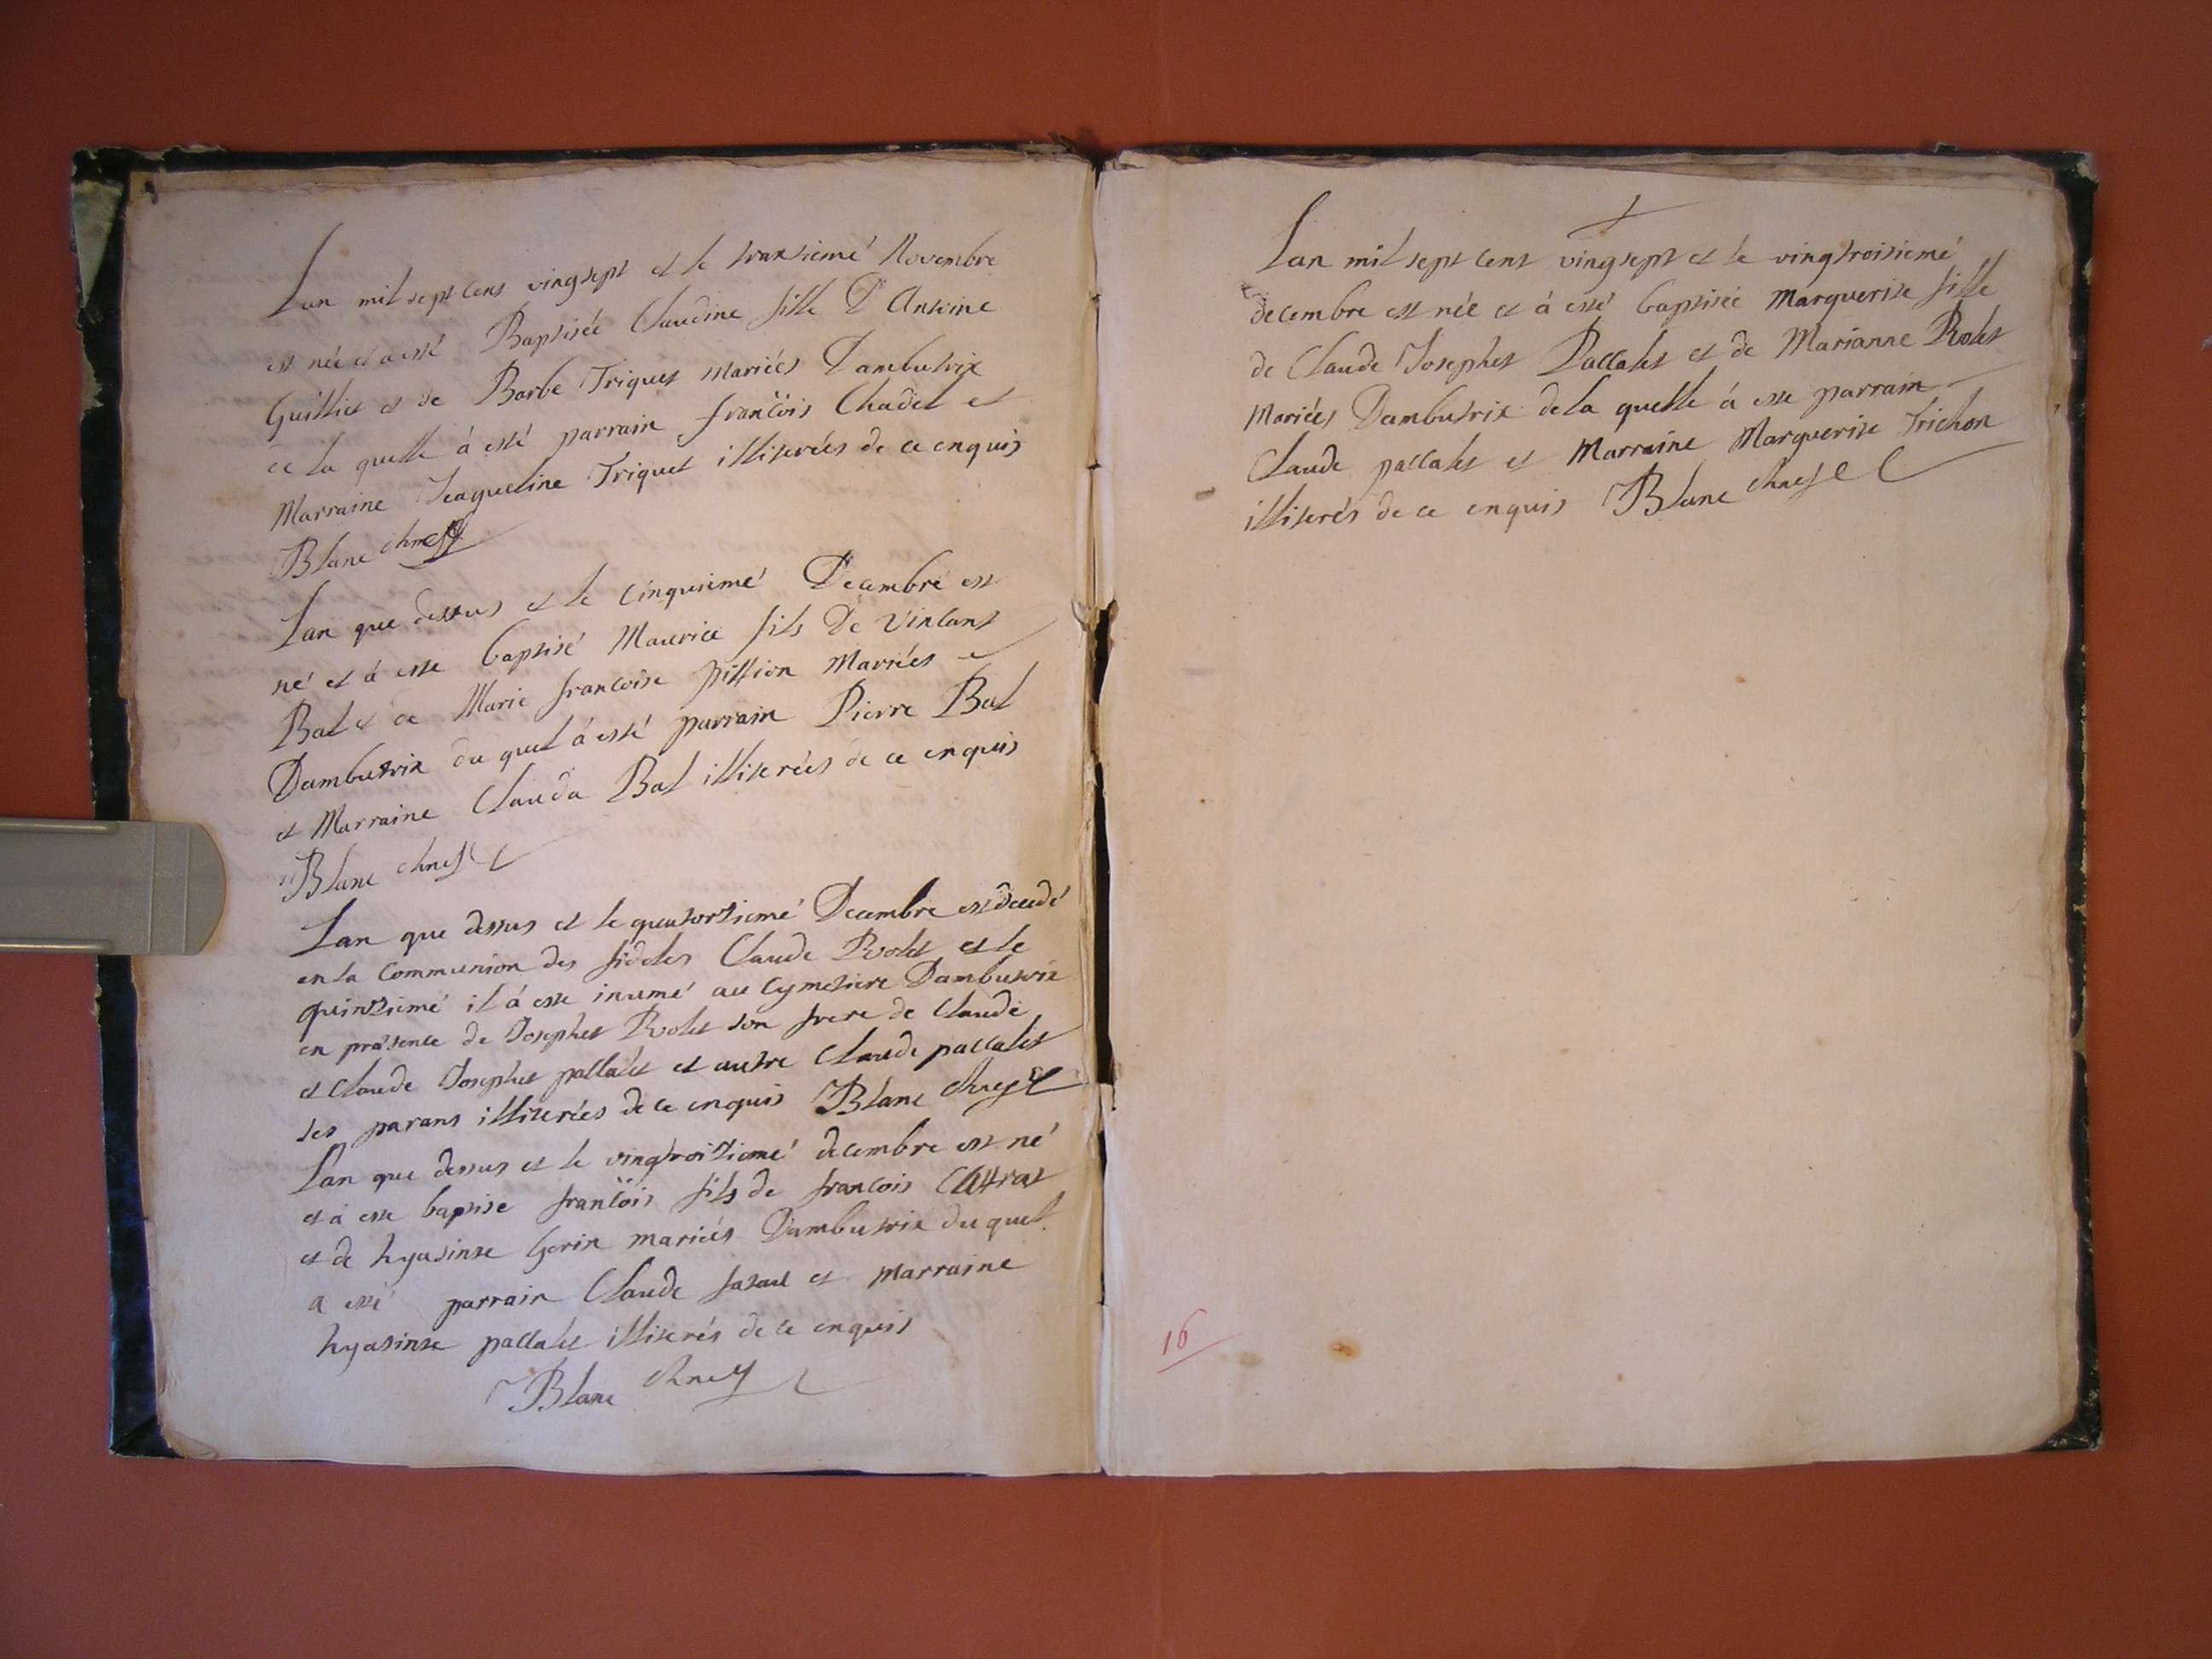 Lan mil sept cens vingsept et le trantieme Novembre
est née et a esté Baptisée Claudine fille D Antoine
Guilliet et de Barbe Triquet mariées Dambutrix
de la quelle à esté parrain francois Chadel et
Marraine Jaqueline Triquet illiterées de ce enquis
Blanc
Lan que dessus et le cinquieme Decembre est
né et à esse baptisé Maurice fils De Vincant
Bal et de Marie francoise pillion Mariées
Dambutrix du quel à esté parrain Pierre Bal
et Marraine Clauda Bal illiterées de ce enquis
Blanc
Lan que dessus et le quatortieme Decembre est decedé
en la Communion des fideles Claude Rolet et le
quintzieme il à esse inumé au Cymetiere Dambutrix
en presence de Josephet Rolet son frere de Claude
et Claude Josephet pallatet et autre Claude pallatet
ses parans illiterées de ce enquis Blanc
Lan que dessus et le vingtroitieme decembre est né
et à esse baptise francois fils de francois
et de hyasinte Gorin mariées Dambutrix du quel
a esse parrain Claude et Marraine
hyasinte pallatet illiterés de ce enquis
Blanc
Lan mil sept cent vingsept et le vingtroisieme
decembre est née et à esté baptisée Marguerite fille
de Claude Josephet Pallatet et de Marianne Rolet
Mariées Dambutrix de la quelle à esse parrain
Claude pallatet et Marraine Marguerite Trichon
illiterés de ce enquis Blanc
16